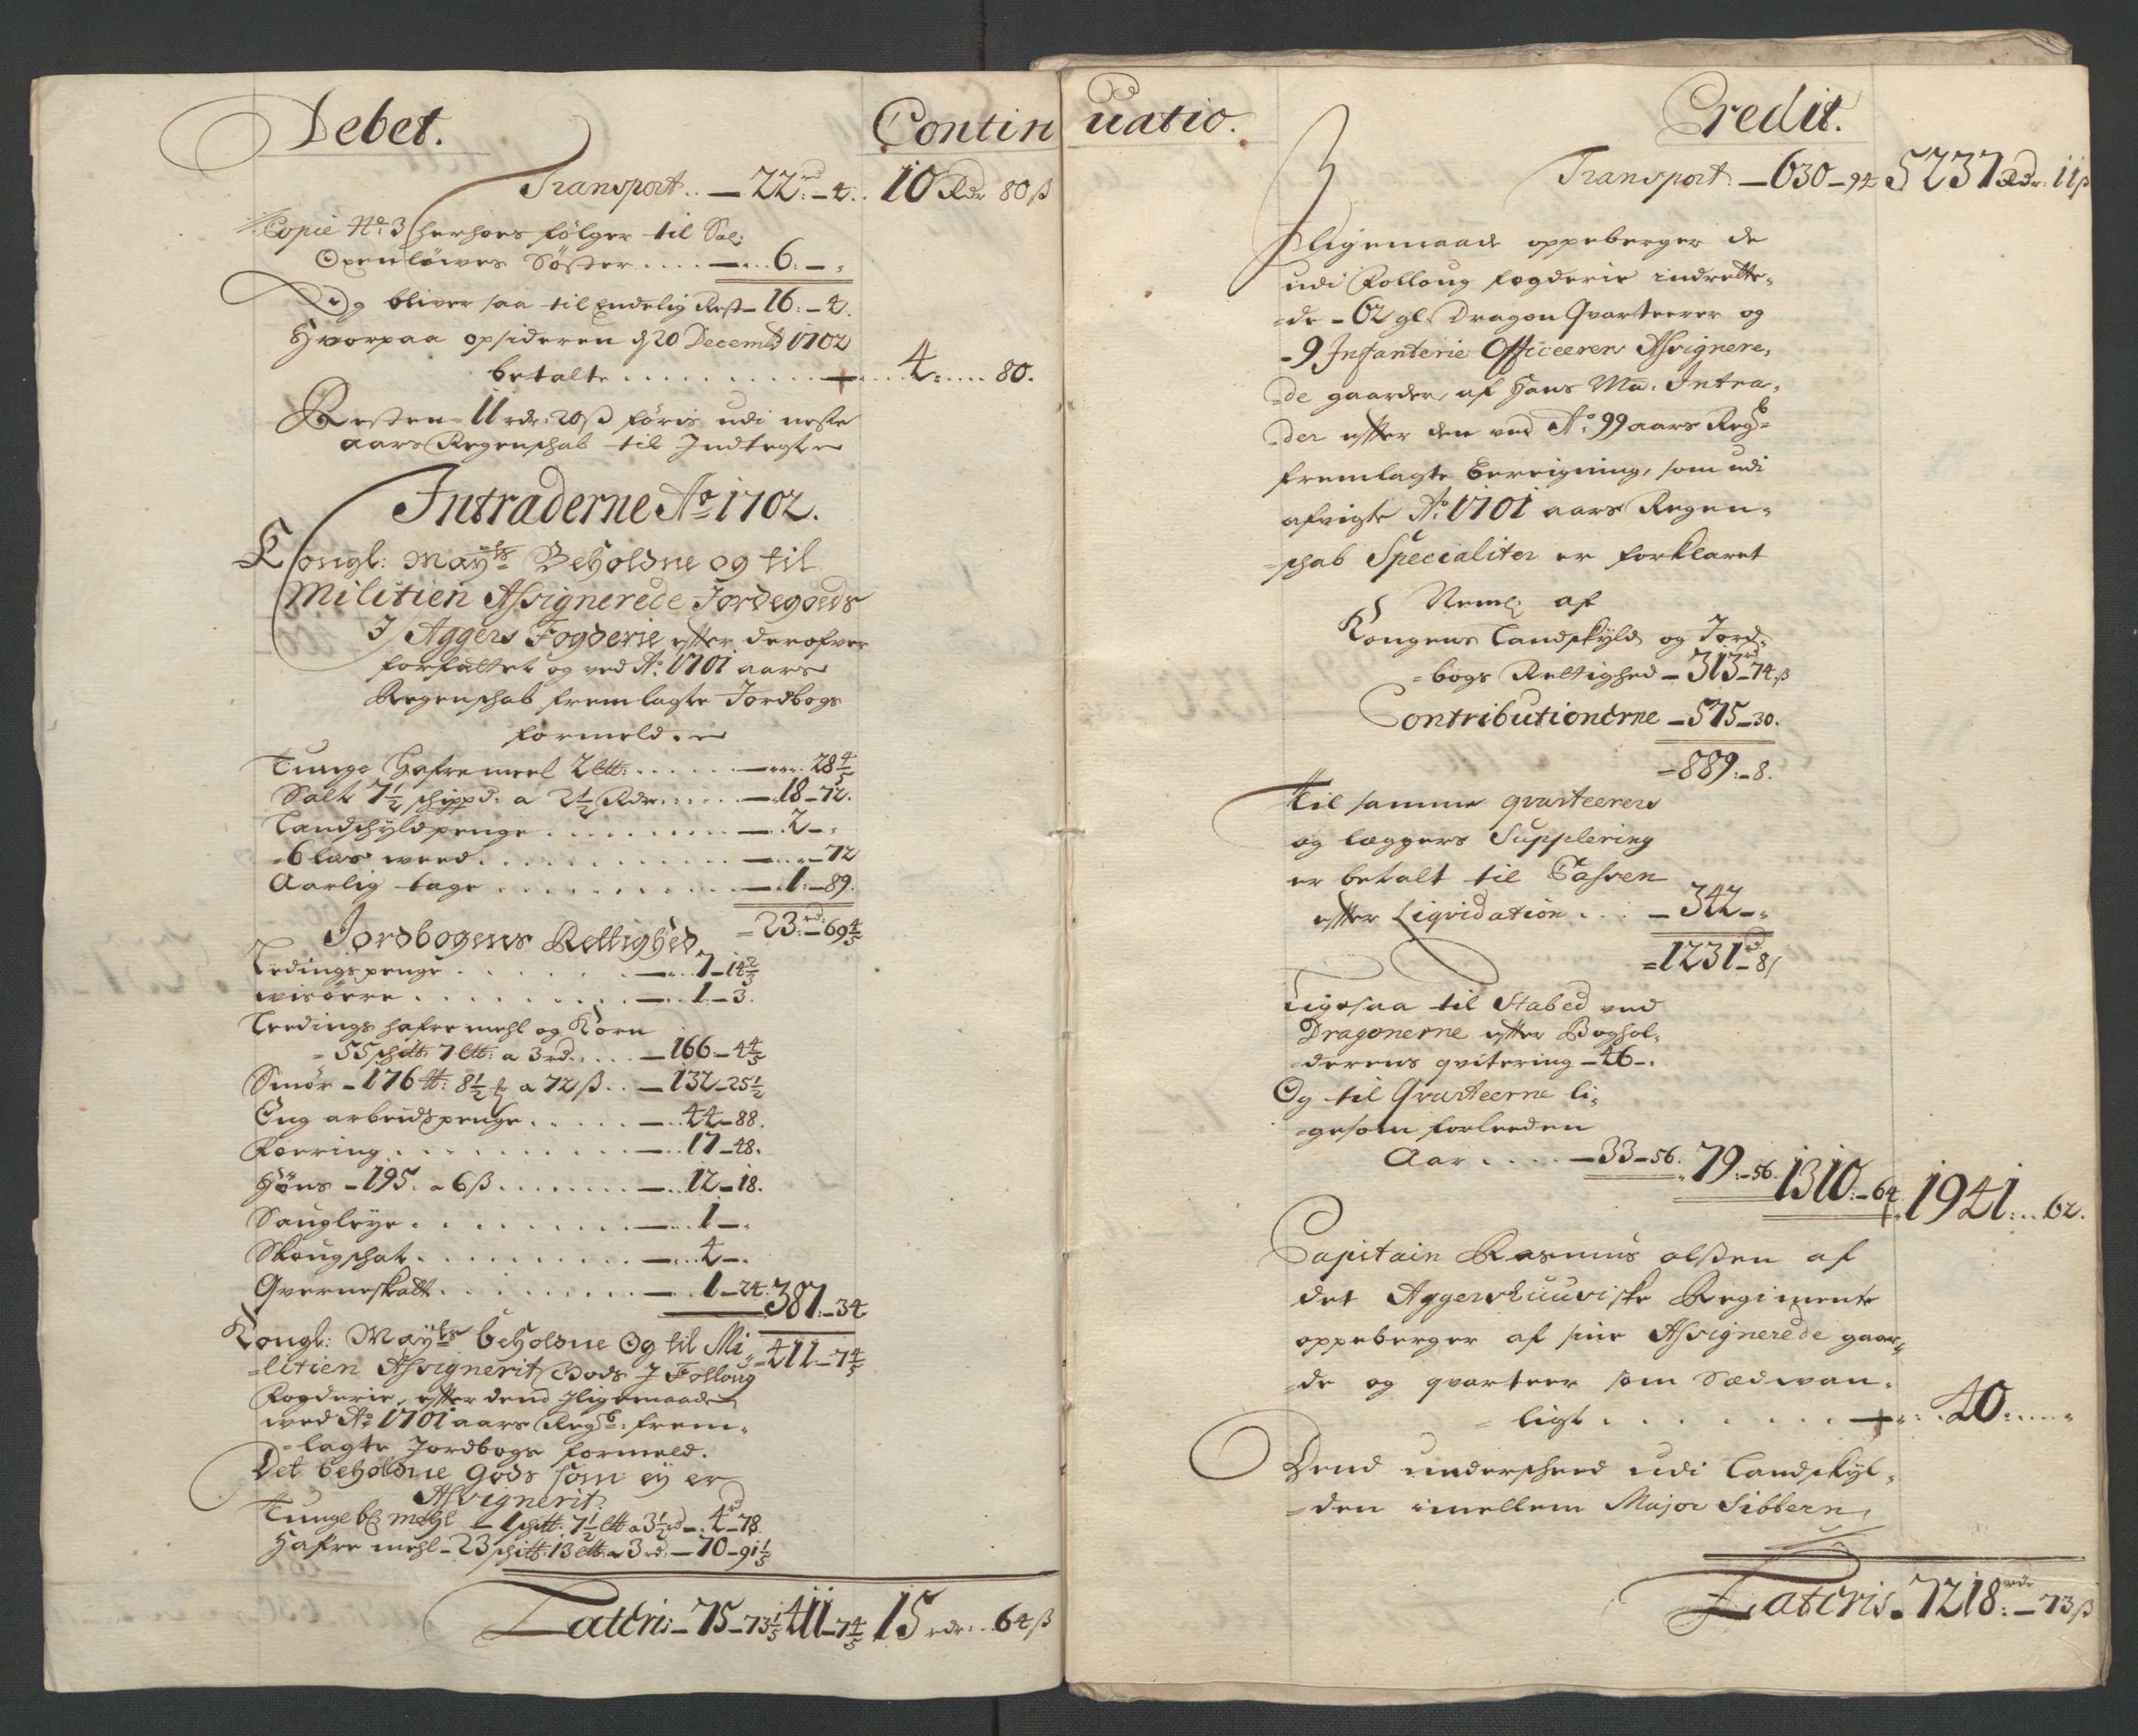 Debet.
Contin
Transport. — 22 rd: — 4.. 10 Rdr 80 ß
Copie No: 3 herhoes følger til Sal:
Oxenløwes Søster .... — .. 6: — :
Og bliver saa til Endelig Rest — 16: — 4.
Hvorpaa opsideren d 20 Decemb 1702
betalte . . . . . . . . . . 4: .... 80.
Resten — 11 rdr: 20 ß føris udi neste
aars Regenschab til Indtegt
Intraderne Ao 1702.
Kongl: Mayts Beholdne og til
Militien Assignerede Jordegods
I Aggers Fogderie efter derofver
forfattet og ved Ao: 1701 aars
Regenschab fremlagte Jordbogs
formeld.
Tunge Hafremeel 2 ℔: . . . . . — .... 28 4/5
Salt 7 1/2 schippd: a 2 1/2 Rdr. . . . . — 18 — 72.
Landschyldpenge . . . . . . . . — . 2 — :
6 læs weed . . . . . . . . . . — . . — 72
Aarlig tage . . . . . . . . . . — . 1: — 89.
= 23 rd: — 69 4/5
Jordbogens Rettighed
Ledingspenge . . . . . . — . . 7 — 14 2/3
wisøere . . . . . . . . . — . . 1 — 3.
Leedings hafremehl og Korn
= 55 schtt: 7 ltt: a 3 rd. . . . — 166 — 4 4/5
Smør — 176 tt: 8 1/2 a 72 ß . . — 132 — 25 1/2
Eng arbeidspenge . . . . . — . 44 — 88.
Foering . . . . . . . . . — . . 17 — 48.
Høns — 195. a 6 ß . . . . . . . — . . 12 — 18.
Saugleye . . . . . . . . . — . . 1 — .
Skougschat . . . . . . . . — . . 4 — .
Qverneskatt . . . . . . . . — . . 1 — 24. 387: — 34
Kongl: Mayts beholdne Og til Mi- = 411 — 7 4/5
-litien Assignerit Gods I Follong
Fogderie, efter dend Iligemaade
ved Ao 1701 aars Regb: frem-
-lagte Jordbogs formeld.
Det beholdne gods som ey er
Assignerit.
Tunge bl mehl — 1 schtt: 7 1/2 ltt a 3 1/2 rd — . 4 rd — 78.
Hafre mehl — 23 schtt: 13 ltt a 3 rd: — 70 — 91 1/5
Lateris — 75 — 73 1/5 411 — 7 4/5 15 rdr: . . 64 ß
uatio.
Credit.
Transport. — 630 — 94 5237 Rdr: 11 ß
Iligemaade oppeberger de
udi Folloug fogderie indrette-
-de — 62 gl. Dragon Qvarteerer og
- 9 Infanterie Officeerers Assignere-
-de gaarder, af Hans Ma. Intra-
-der efter den ved Ao: 99 aars Regb=
fremlagte Bereigning, som udi
afvigte Ao: 1701 aars Regen-
-schab Specialiter er forklaret
Neml: af
Kongens Landskyld og Jord-
-bogs Rettighed — 313 rd — 74 ß
Contributionerne — 575 — 30.
= 889: — 8.
Til samme qvarteerers
og læggers Supplering
er betalt til Cassen
efter Liqvidation . . . — 342 — :
= 1231 rd — 8/
Ligesaa til Stabed ved
Dragonerne efter Boghol-
-derens qvitering — 46 — .
Og til Qvarteerne li-
-gesom forleeden
Aar . . . . — 33 — 56. . 79: — 56. 1310: — 64. 1941: . . 62.
Capitain Rasmus olsen af
det Aggershuusiske Regimente
oppeberger af sine Assignerede gaar-
-de og qvarteer som Sædwan-
-ligt . . . . . . . 40: .... :
Dend underscheed udi Landskyl-
-den imellem Major Sibbern,
Lateris. 7218: rdr — 73 ß